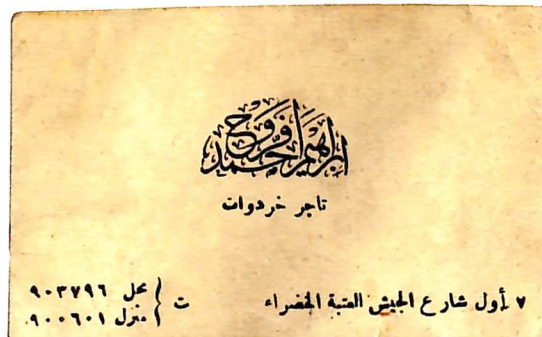 ابراهيم احمد فروح
تاجر خردوات
٧ أول شارع الجيش العتبة الخضراء
ت { محل ٩٠٣٧٩٦
منزل ٩٠٠٦٠١